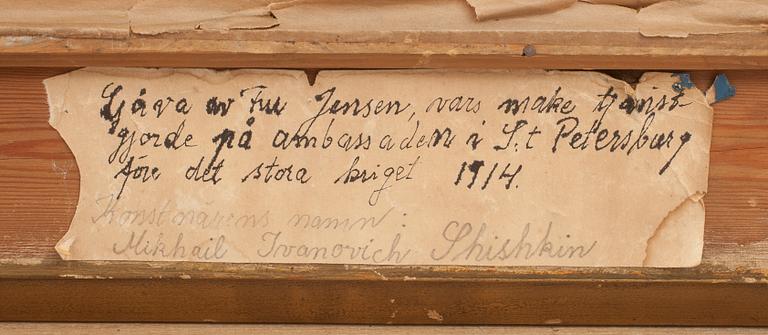 Gåva av Fru Jensen, vars make tjänst-
gjorde på ambassaden i S.t Petersburg
före det stora kriget 1914.
Konstnärens namn:
Mikhail Ivanovich Shishkin